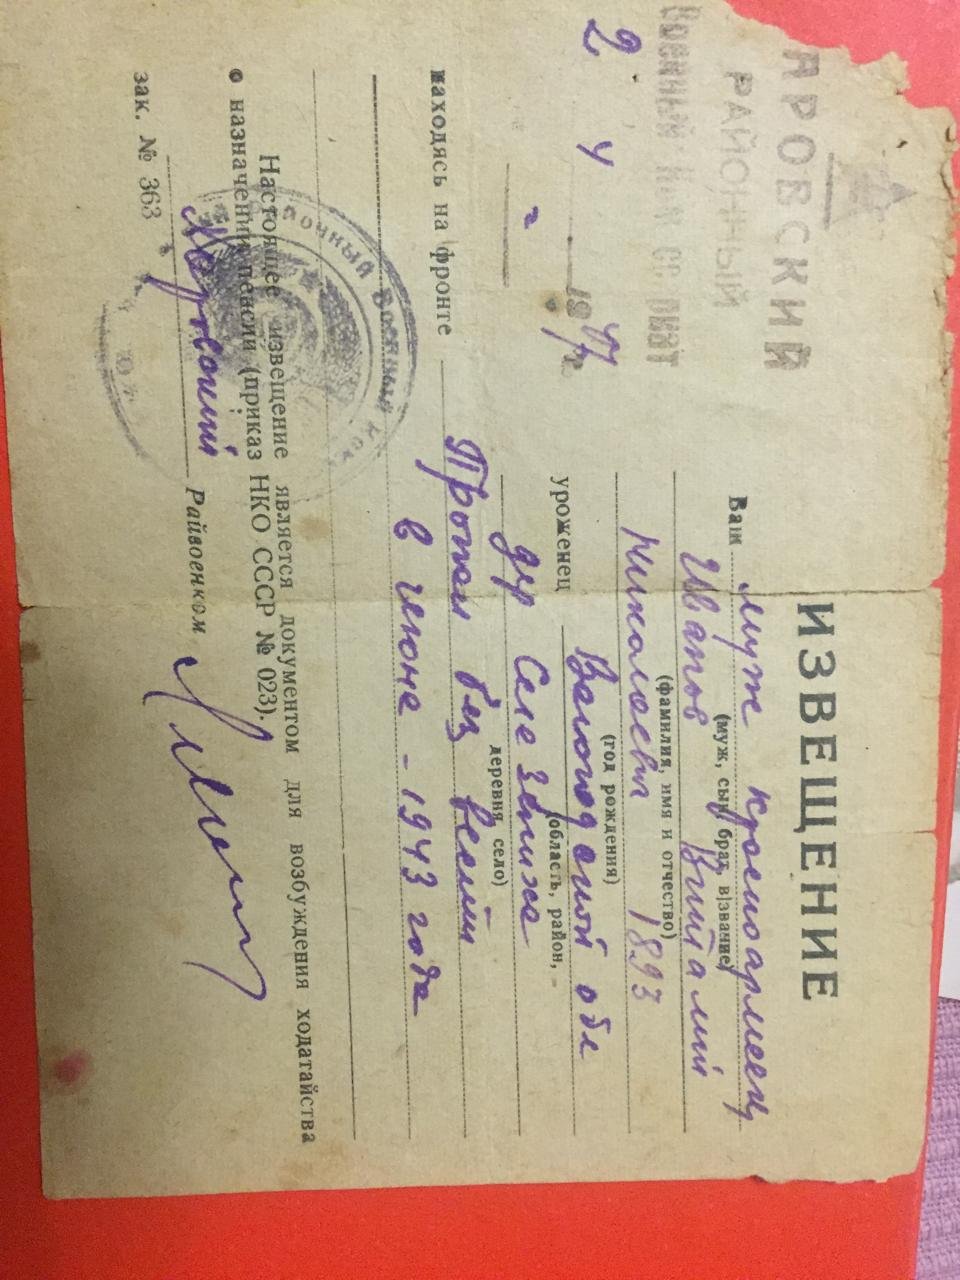 АРОВСКИЙ
РАЙОННЫЙ
ВОЕННЫЙ
2 4 1947 г.
ИЗВЕЩЕНИЕ
Ваш муж красноармеец
(муж, сын, брат, в/звание)
Иванов Виталий
(фамилия, имя и отчество)
Николаевич 1893
(год рождения)
уроженец Вологодской обл
(область, район,
дер Селезениха
деревня, село)
находясь на фронте Пропал без вести
в июне - 1943 года
Настоящее извещение является документом для возбуждения ходатайства
о назначении пенсии (приказ НКО СССР № 023).
Райвоенком
зак. № 363